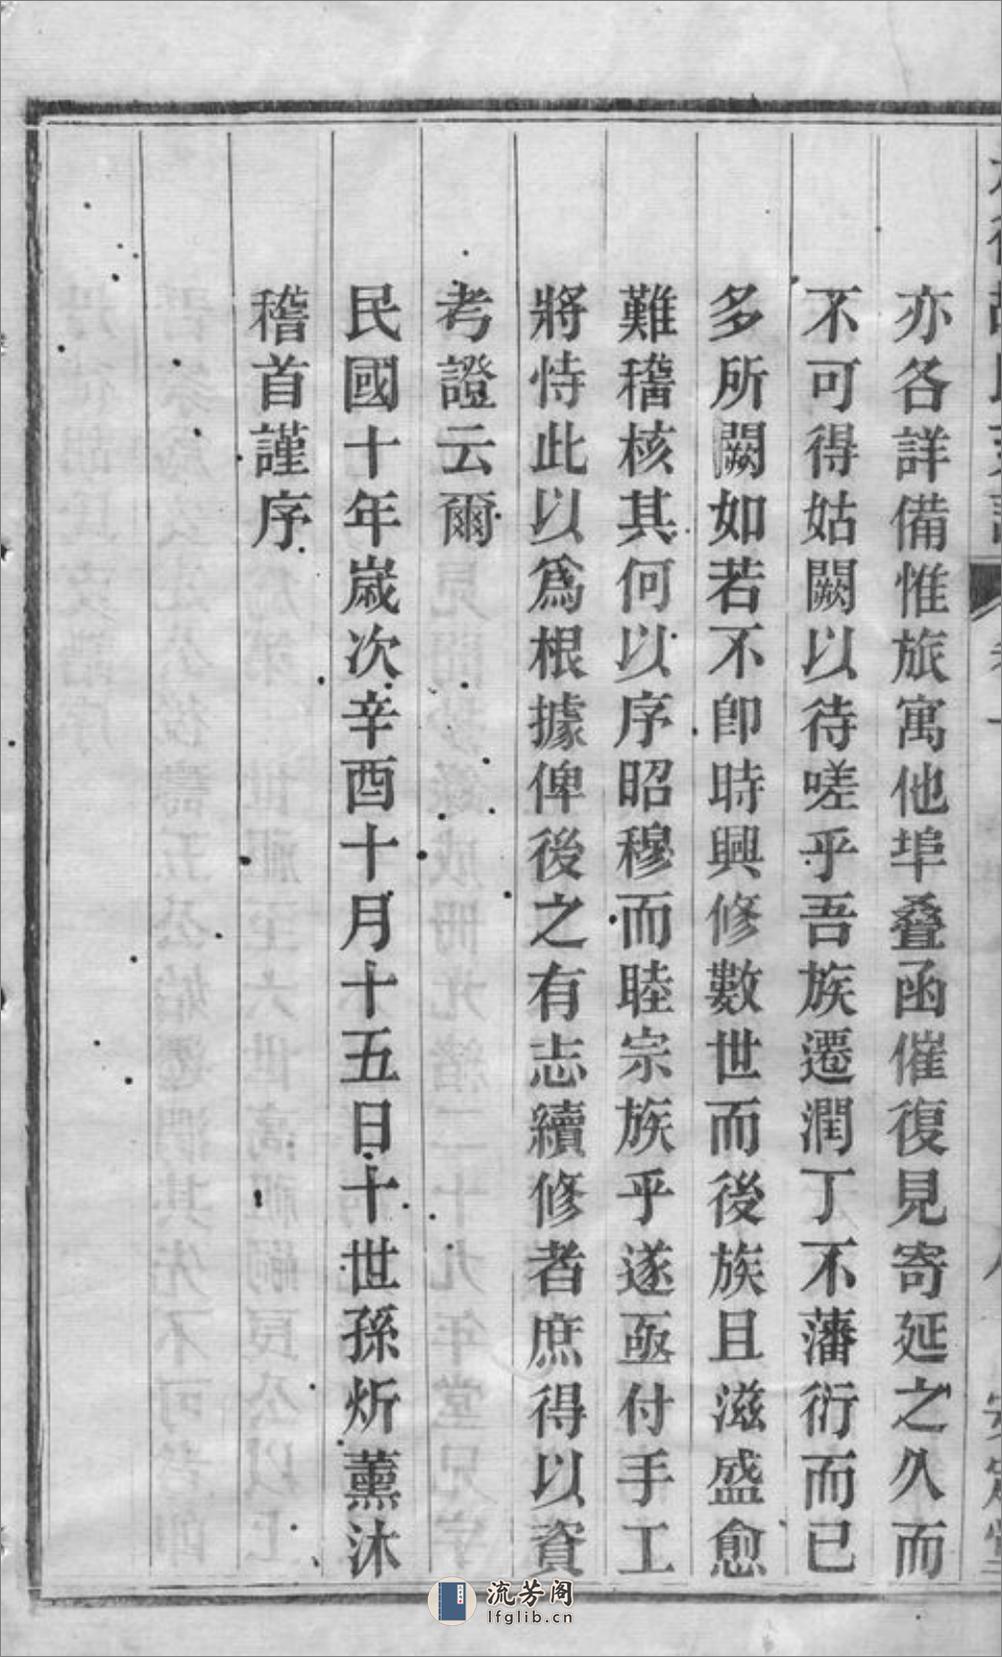 亦各詳備惟旅寓他埠叠函催復見寄延之久而
不可得姑闕以待嗟乎吾族遷潤丁不藩衍而已
多所闕如若不卽時興修數世而後族且滋盛愈
難稽核其何以序昭穆而睦宗族乎遂亟付手工
將恃此以爲根據俾後之有志續修者庶得以資
考證云爾
民國十年歲次辛酉十月十五日十世孫炘薰沐
稽首謹序
流芳阁
lfglib.cn